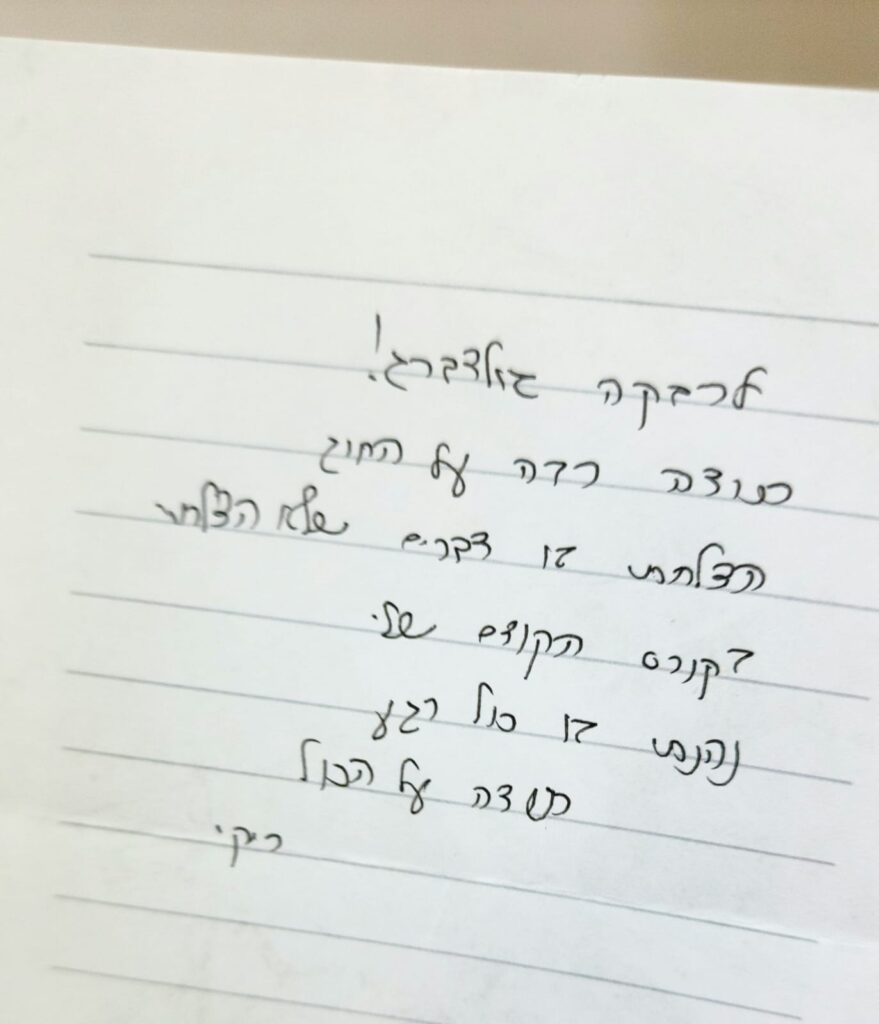 לרבקה גולדברג!
תודה רבה על החוג
הצלחתי בו דברים שלא הצלחתי
בקורס הקודם שלי
נהנתי בו כול רגע
תודה על הכול
ריקי